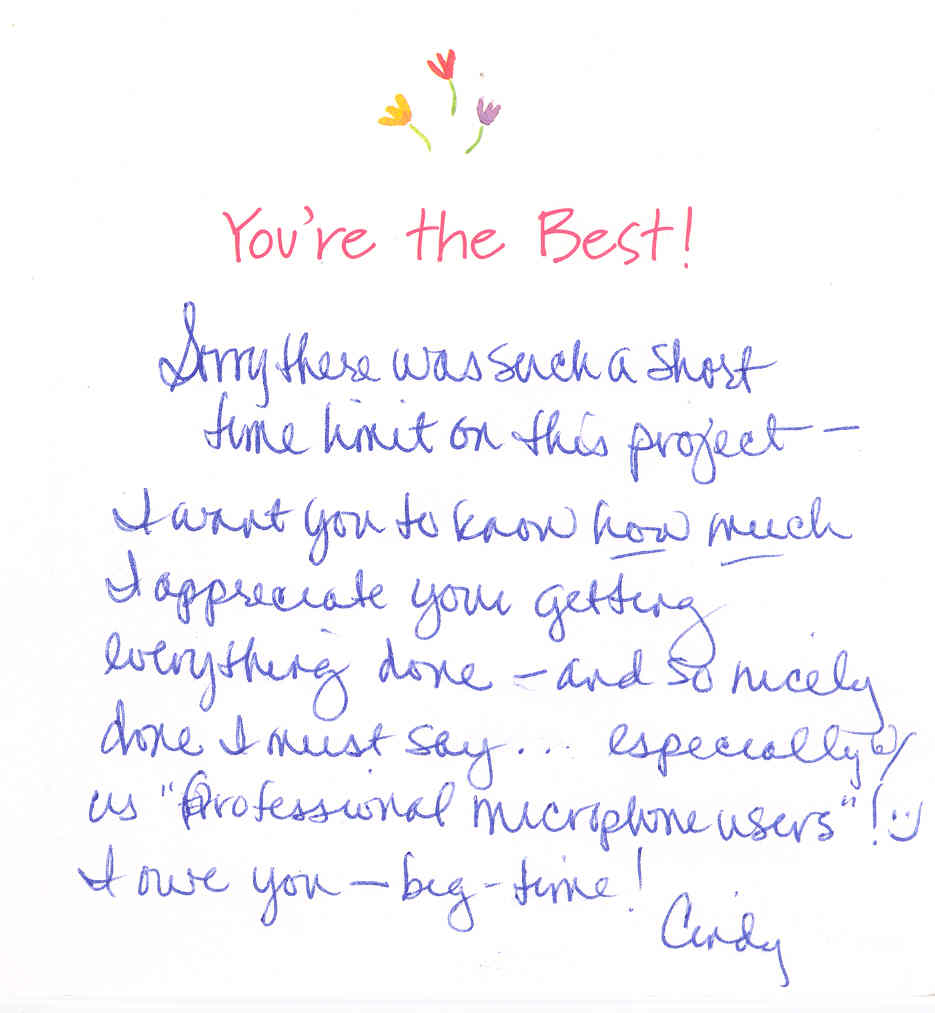 You're the Best!
Sorry there was such a short
time limit on this project —
I want you to know how much
I appreciate your getting
everything done — and so nicely
done I must say... especially w/
us "Professional microphone users"! :)
I owe you — big-time!
Cindy